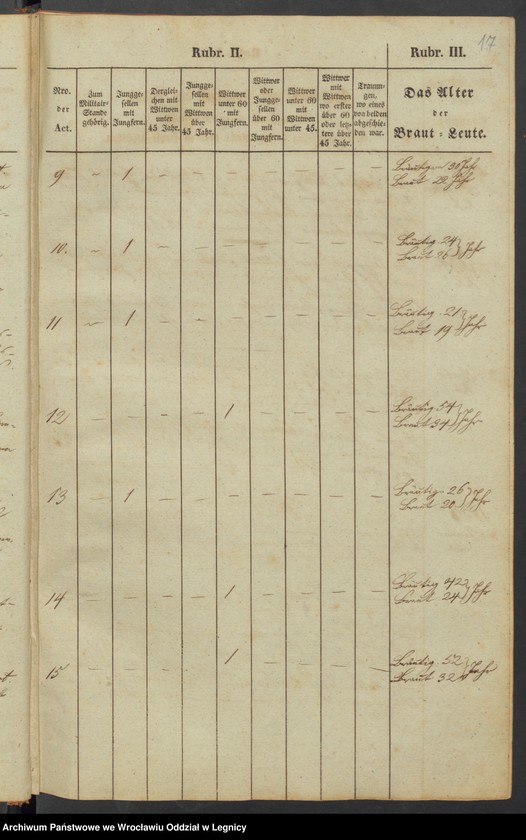 17
Rubr. II.
Rubr. III.
Nro.
der
Act.
Zum
Militair-
Stande
gehörig.
Jungge-
sellen
mit
Jungfern.
Derglei-
chen mit
Wittwen
unter
45 Jahr.
Jungge-
sellen
mit
Wittwen
über
45 Jahr.
Wittwer
unter 60
mit
Jungfern.
Wittwer
oder
Jungge-
sellen
über 60
mit
Jungfern.
Wittwer
unter 60
mit
Wittwen
unter 45.
Wittwer
mit
Wittwen
wo erster
über 60
oder letz-
tere über
45 Jahr.
Traun-
gen,
wo eines
von beiden
abgeschie-
den war.
Das Alter
der
Braut-Leute.
9 – 1 – – – – – – – Bräutig. 30 Jahr
Braut 22 Jahr
10. – 1 – – – – – – – Bräutig. 24 } Jahr
Braut 26
11 – 1 – – – – – – – Bräutig. 21 } Jahr
Braut 19
12 – – – – 1 – – – – Bräutig. 54 } Jahr
Braut 34
13 – 1 – – – – – – – Bräutig. 26 } Jahr
Braut 20
14 – – – – 1 – – – – Bräutig. 42 } Jahr
Braut 24
15 – – – – 1 – – – – Bräutig. 52 } Jahr
Braut 32
Archiwum Państwowe we Wrocławiu Oddział w Legnicy